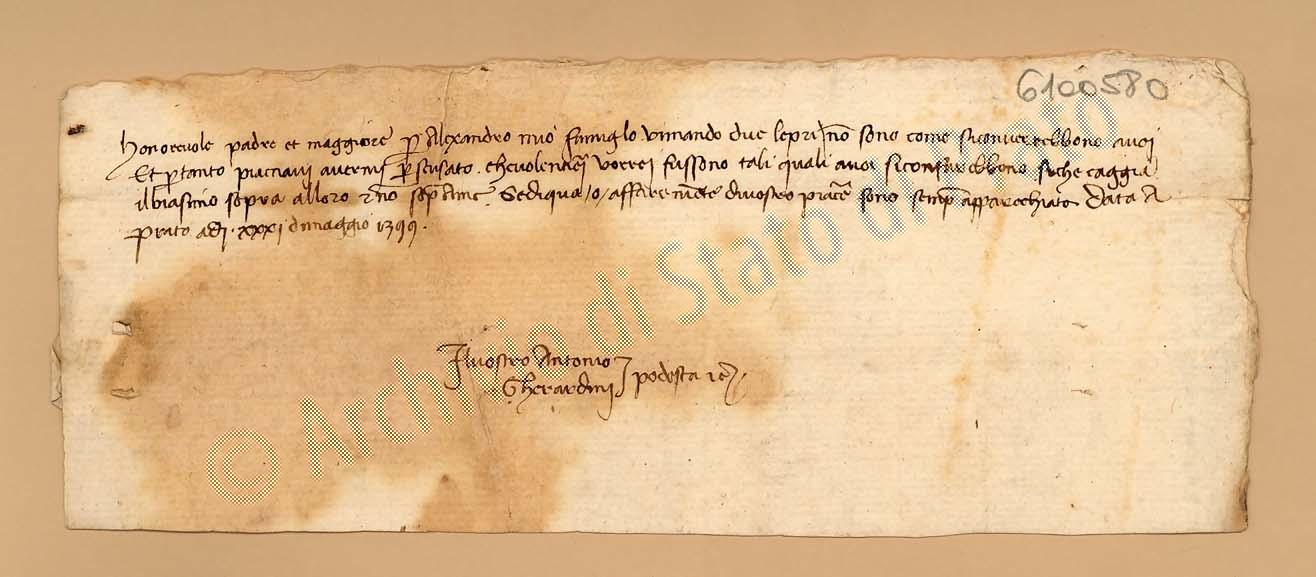 6100580
Honorevole padre et maggiore p Alexandro mio famiglo vi mando due lepri no sono come si converrebbono a voi
Et ptanto piacciavi avermi p scusato che volentieri vorrei fussono tali quali a voi si confarebbono siche caggia
il biasimo sopra alloro e no sop a me. Se di qua /o/ affare niete di vostro piacere sono semp apparecchiato Data A
prato adi . xxxi di maggio 1399 .
Il vostro Antonio
Gherardini podesta
© Archivio di Stato di Prato